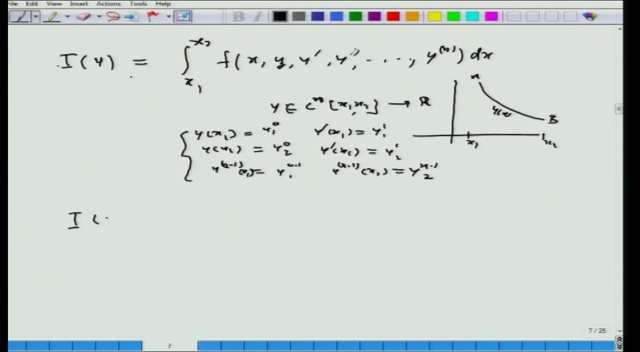 File Edit View Insert Actions Tools Help
I(y) = ∫_{x_1}^{x_2} f(x, y, y', y'', ...., y^{(n)}) dx
y ∈ C^n [x_1, x_2] → R
y(x_1) = y_1^0 y'(x_1) = y_1^1
y(x_2) = y_2^0 y'(x_2) = y_2^1
y^{(n-1)}(x_1) = y_1^{n-1} y^{(n-1)}(x_2) = y_2^{n-1}
A
y(x)
B
x_1 x_2
I (
7 / 25
7